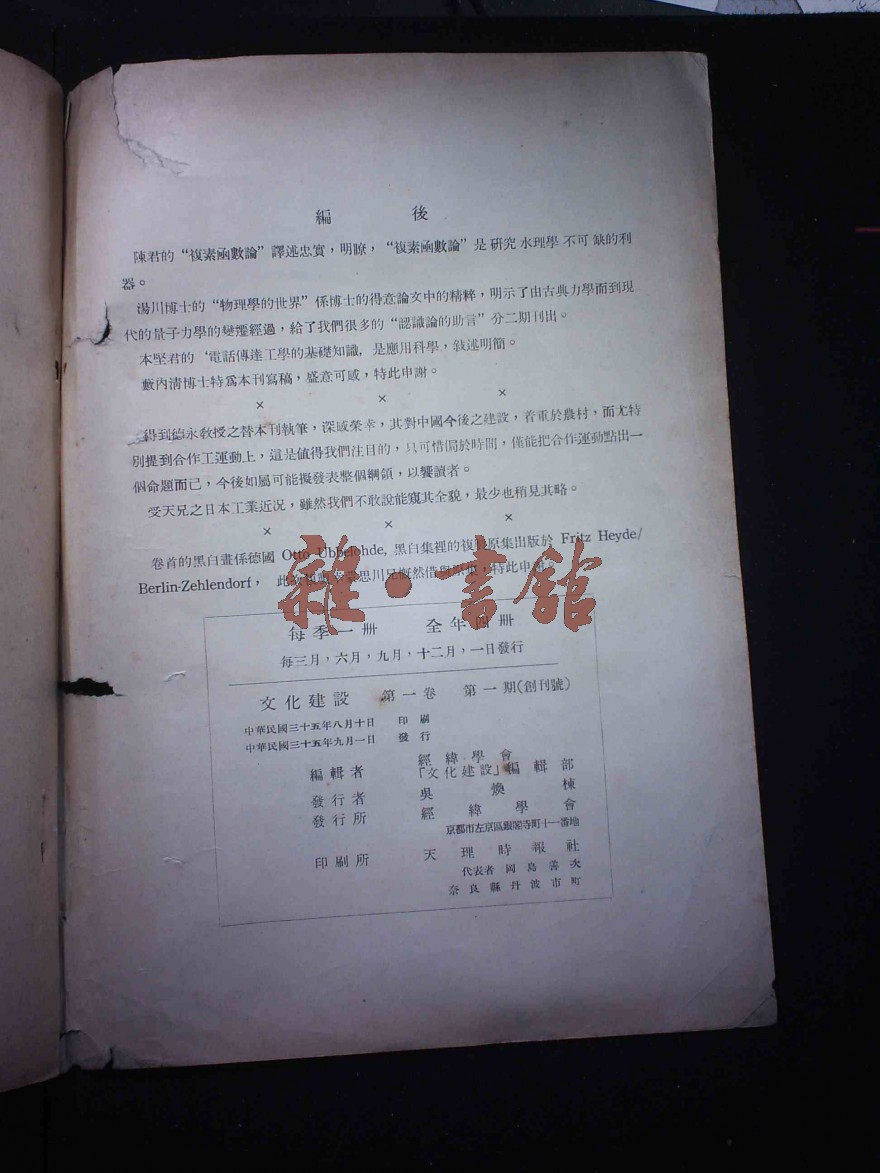 編　後
陳君的“複素函數論”譯述忠實，明瞭，“複素函數論”是研究水理學不可缺的利
器。
湯川博士的“物理學的世界”係博士的得意論文中的精粹，明示了由古典力學而到現
代的量子力學的變遷經過，給了我們很多的“認識論的助言”分二期刊出。
本堅君的‘電話傳達工學的基礎知識，是應用科學，敍述明簡。
藪內淸博士特爲本刊寫稿，盛意可感，特此申謝。
×　×　×
得到德永敎授之替本刊執筆，深感榮幸，其對中國今後之建設，着重於農村，而尤特
別提到合作工運動上，這是値得我們注目的，只可惜局於時間，僅能把合作運動點出一
個命題而已，今後如屬可能擬發表整個綱領，以饗讀者。
受天兄之日本工業近況，雖然我們不敢說能窺其全貌，最少也稍見其略。
×　×　×
卷首的黑白畫係德國 Otto Ubbelohde, 黑白集裡的複 原集出版於 Fritz Heyde/
Berlin-Zehlendorf， 此 思川兄慨然借與原 ，特此申謝。
雜・書館
每季一冊　全年四冊
每三月，六月，九月，十二月，一日發行
文化建設　第一卷　第一期(創刊號)
中華民國三十五年八月十日　印刷
中華民國三十五年九月一日　發行
編輯者　經緯學會
「文化建設」編輯部
發行者　吳煥棟
發行所　經緯學會
京都市左京區銀閣寺町十一番地
印刷所　天理時報社
代表者　岡島善次
奈良縣丹波市町